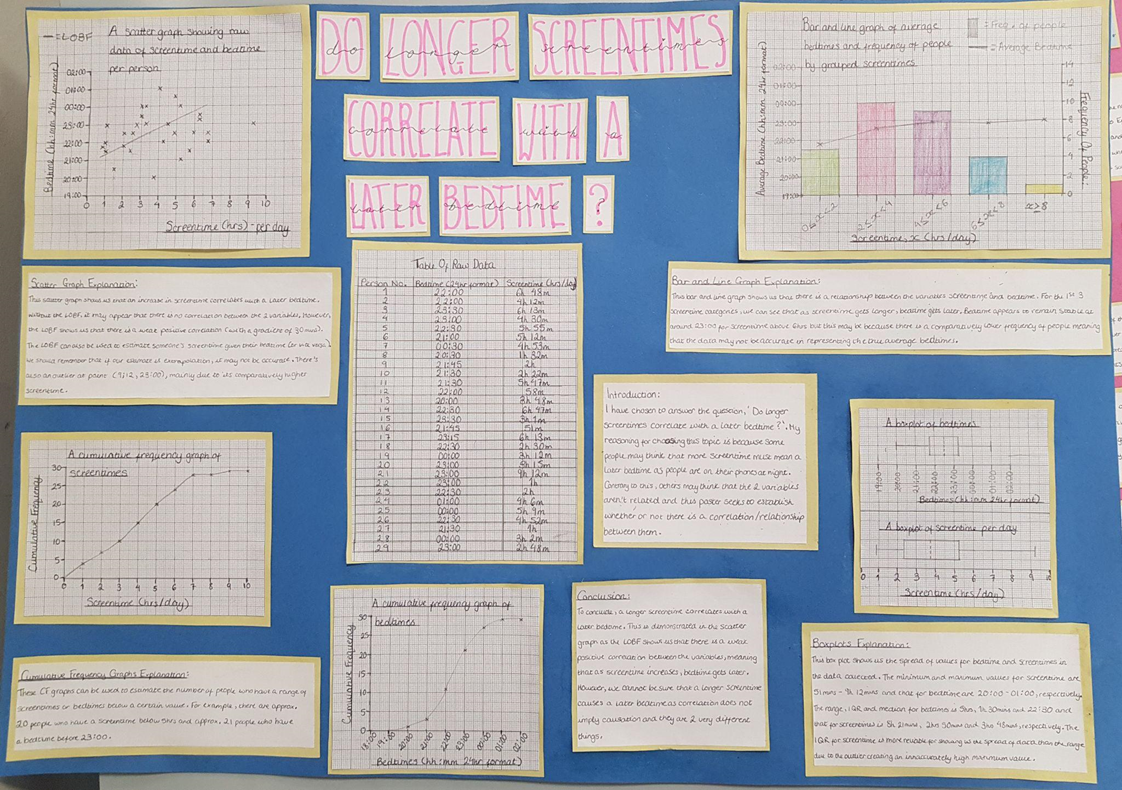 DO LONGER SCREENTIMES
do longer screentimes
CORRELATE WITH A
correlate with a
LATER BEDTIME ?
later bedtime ?
—=LOBF
A scatter graph showing raw
data of screentime and bedtime
per person
Bedtime (hh:mm 24hr format)
02:00
01:00
00:00
23:00
22:00
21:00
20:00
19:00
0 1 2 3 4 5 6 7 8 9 10
Screentime (hrs) - per day
Scatter Graph Explanation:
This scatter graph shows us that an increase in screentime correlates with a later bedtime.
Without the LOBF, it may appear that there is no correlation between the 2 variables. However,
the LOBF shows us that there is a weak positive correlation (with a gradient of 30 mins).
The LOBF can also be used to estimate someone's screentime given their bedtime (or vice versa)
we should remember that if our estimate is extrapolation, it may not be accurate. There's
also an outlier at point (9:12, 23:00), mainly due to its comparatively higher
screentime.
A cumulative frequency graph of
screentimes
Cumulative Frequency
30
25
20
15
10
5
0
0 1 2 3 4 5 6 7 8 9 10
Screentime (hrs/day)
Cumulative Frequency Graphs Explanation:
These CF graphs can be used to estimate the number of people who have a range of
screentimes or bedtimes below a certain value. For example, there are approx.
20 people who have a screentime below 5hrs and approx. 21 people who have
a bedtime before 23:00.
Table Of Raw Data
Person No. Bedtime (24hr format) Screentime (hrs/day)
1 22:00 6h 48m
2 22:00 4h 12m
3 23:30 6h 13m
4 23:00 4h 30m
5 22:30 3h 55m
6 21:00 5h 12m
7 00:30 4h 53m
8 20:30 1h 32m
9 21:45 2h
10 21:30 2h 22m
11 21:30 5h 47m
12 22:00 58m
13 20:00 3h 48m
14 22:30 6h 47m
15 23:30 3h 1m
16 21:45 51m
17 23:15 6h 13m
18 22:30 2h 30m
19 00:00 3h 12m
20 23:00 5h 15m
21 23:00 9h 12m
22 23:00 1h
23 22:30 2h
24 01:00 4h 6m
25 00:00 5h 9m
26 22:30 4h 52m
27 21:30 1h
28 00:00 3h 2m
29 23:00 2h 48m
A cumulative frequency graph of
bedtimes
Cumulative Frequency
30
25
20
15
10
5
0
18:00 19:00 20:00 21:00 22:00 23:00 00:00 01:00 02:00
Bedtimes (hh:mm 24hr format)
Bar and line graph of average
bedtimes and frequency of people
by grouped screentimes
= Freq. of people
= Average Bedtime
Average Bedtime (hh:mm 24hr format)
02:00
01:00
00:00
23:00
22:00
21:00
20:00
19:00
Frequency Of People
14
12
10
8
6
4
2
0
0≤x<2 2≤x<4 4≤x<6 6≤x<8 x≥8
Screentime, x (hrs/day)
Bar and Line Graph Explanation:
This bar and line graph shows us that there is a relationship between the variables screentime and bedtime. For the 1st 3
screentime categories, we can see that as screentime gets longer, bedtime gets later. Bedtime appears to remain stable at
around 23:00 for screentime above 6hrs but this may be because there is a comparatively lower frequency of people meaning
that the data may not be accurate in representing the true average bedtimes.
Introduction:
I have chosen to answer the question, 'Do longer
screentimes correlate with a later bedtime?'. My
reasoning for choosing this topic is because some
people may think that more screentime must mean a
later bedtime as people are on their phones at night.
Contrary to this, others may think that the 2 variables
aren't related and this poster seeks to establish
whether or not there is a correlation/relationship
between them.
Conclusion:
To conclude, a longer screentime correlates with a
later bedtime. This is demonstrated in the scatter
graph as the LOBF shows us that there is a weak
positive correlation between the variables, meaning
that as screentime increases, bedtime gets later.
However, we cannot be sure that a longer screentime
causes a later bedtime as correlation does not
imply causation and they are 2 very different
things.
A boxplot of bedtimes
19:00 20:00 21:00 22:00 23:00 00:00 01:00 02:00
Bedtimes (hh:mm 24hr format)
A boxplot of screentime per day
0 1 2 3 4 5 6 7 8 9 10
Screentime (hrs/day)
Boxplots Explanation:
This box plot shows us the spread of values for bedtime and screentimes in
the data collected. The minimum and maximum values for screentime are
51mins - 9h 12mins and that for bedtime are 20:00 - 01:00, respectively.
The range, IQR and median for bedtimes is 5hrs, 1h 30mins and 22:30 and
that for screentimes is 8h 21mins, 2hrs 50mins and 3hrs 48mins, respectively. The
IQR for screentime is more reliable for showing us the spread of data than the range
due to the outlier creating an inaccurately high maximum value.